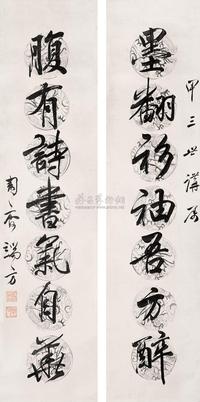 甲三世講屬
墨翻衫袖吾方醉
腹有詩書氣自華
匋齋端方